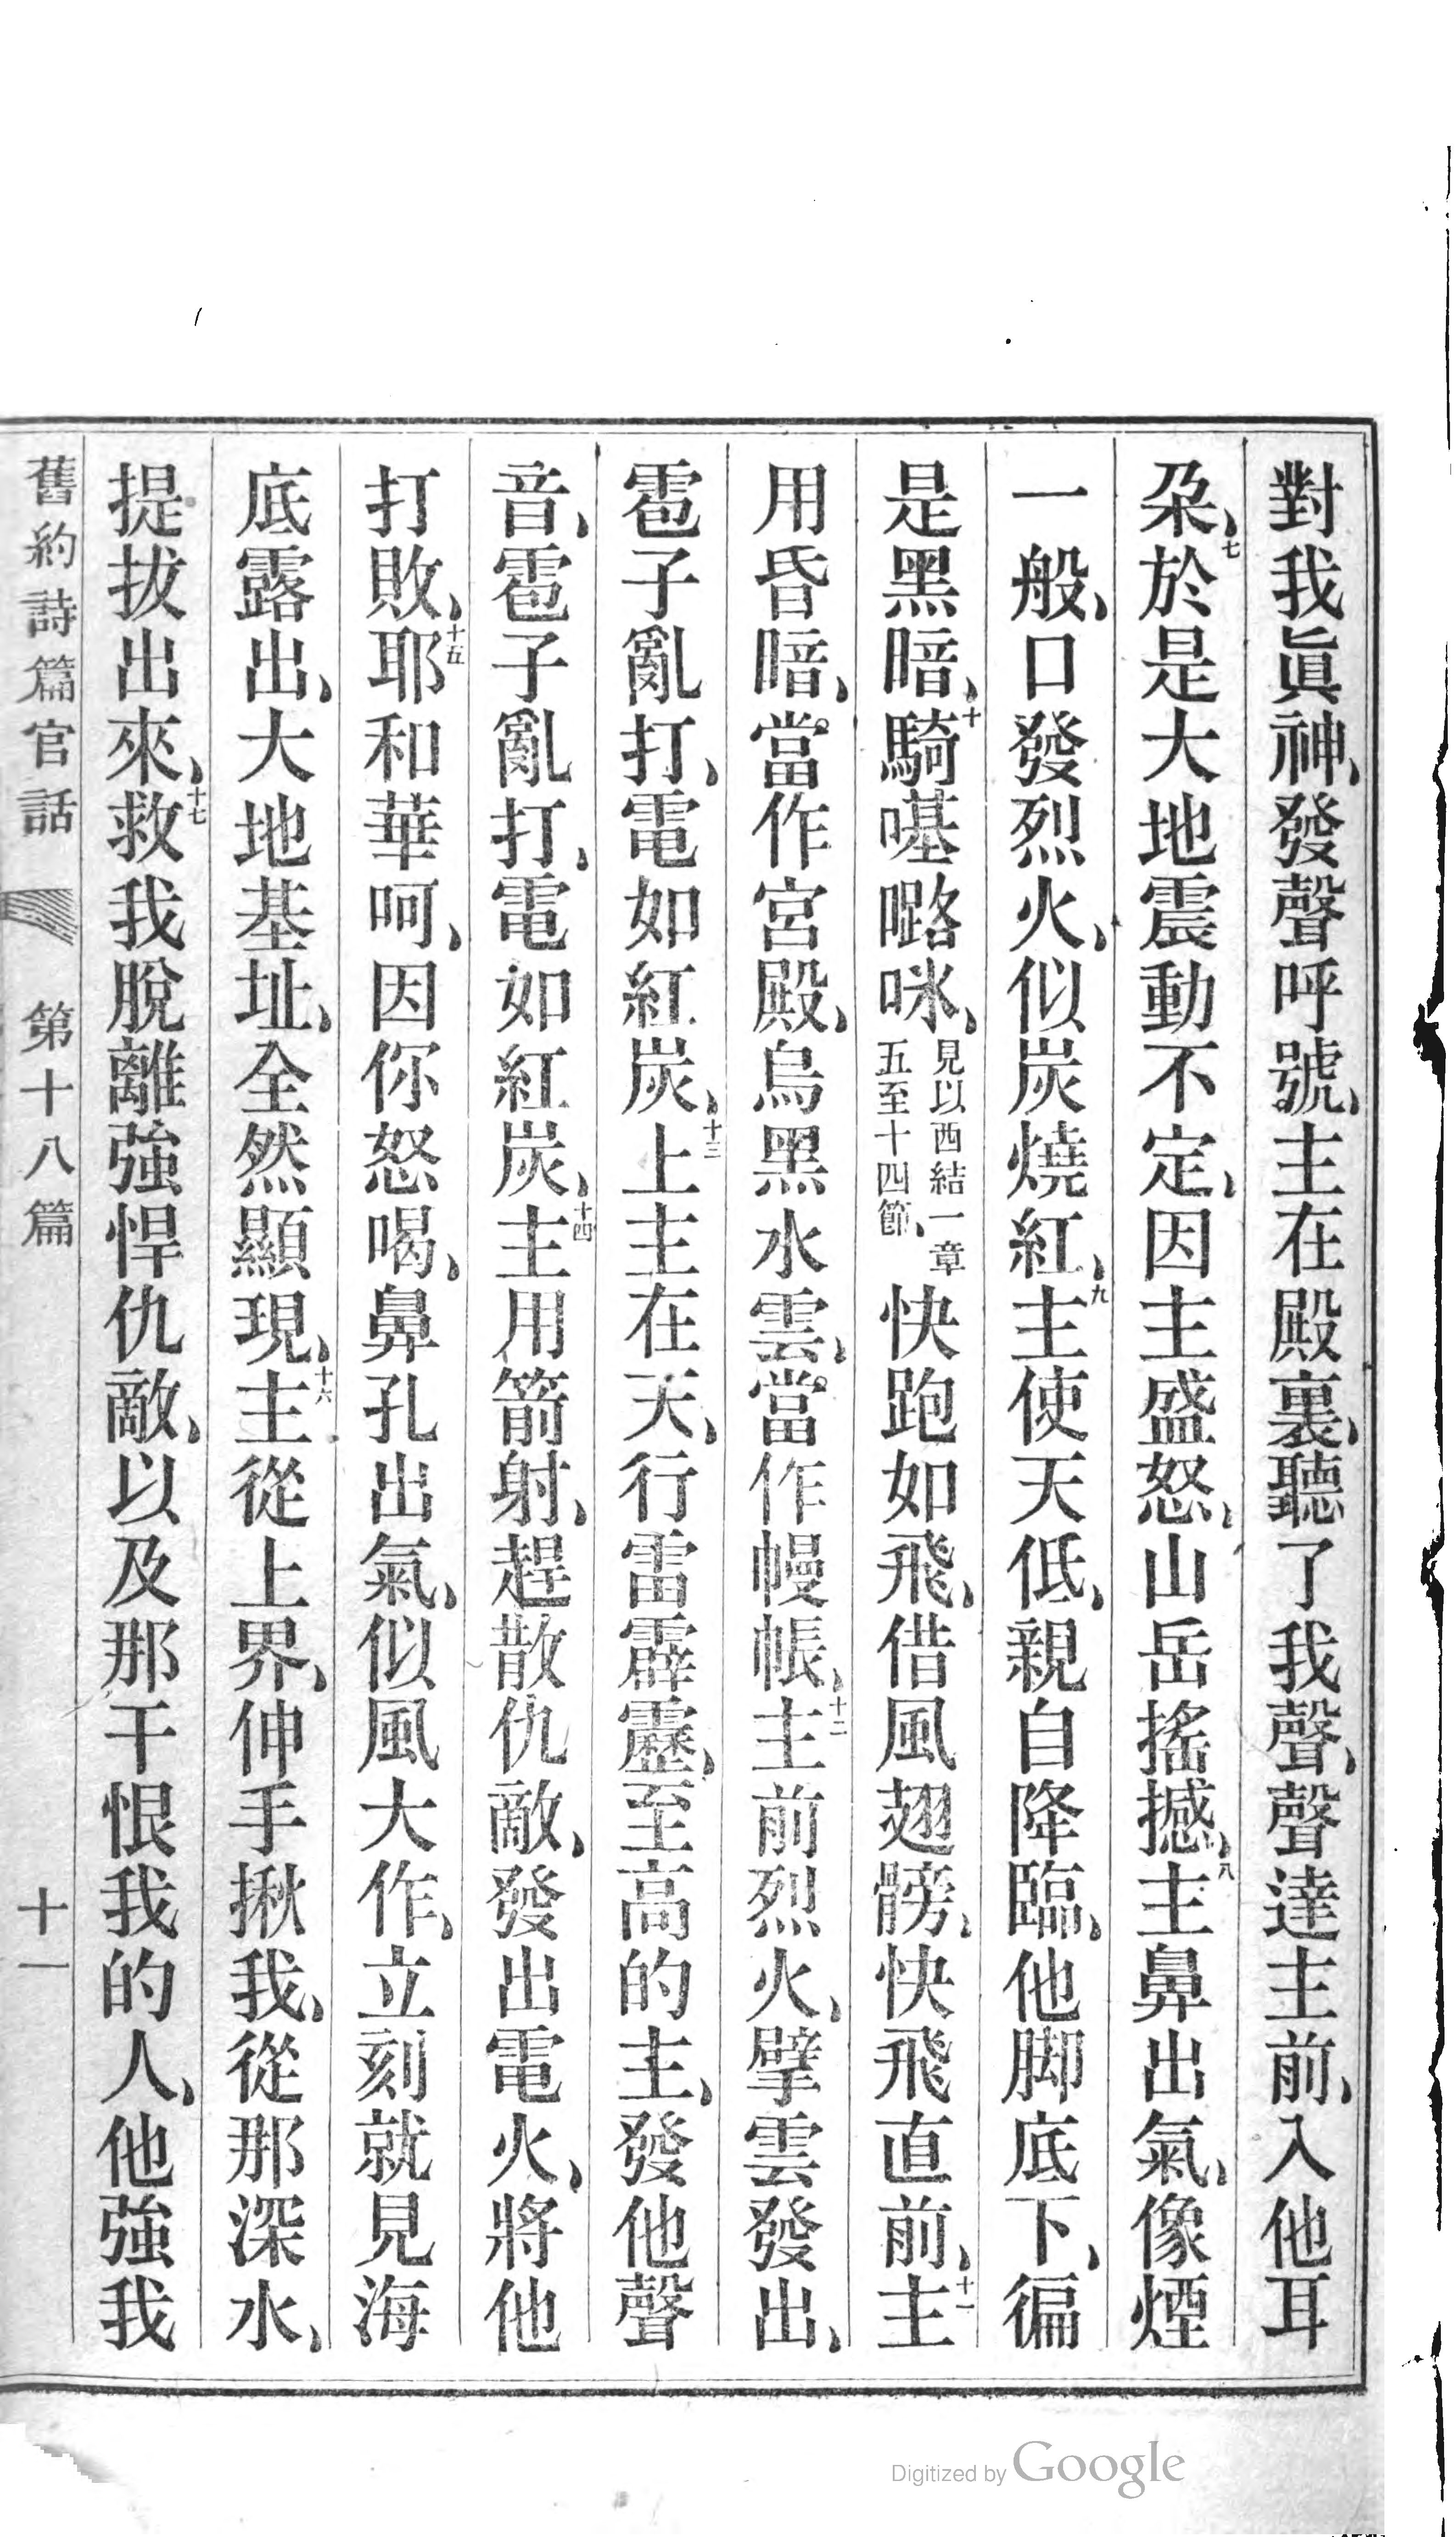 對我眞神、發聲呼號、主在殿裏、聽了我聲、聲達主前、入他耳
朶、七於是大地震動不定、因主盛怒、山岳搖撼、八主鼻出氣、像煙
一般、口發烈火、似炭燒紅、九主使天低、親自降臨、他脚底下、徧
是黑暗、十騎𠹌𠼢咪、見以西結一章五至十四節、快跑如飛、借風翅髈、快飛直前、十一主
用昏暗、當作宮殿、烏黑水雲、當作幔帳、十二主前烈火、擘雲發出、
雹子亂打、電如紅炭、十三上主在天、行雷霹靂、至高的主、發他聲
音、雹子亂打、電如紅炭、十四主用箭射、趕散仇敵、發出電火、將他
打敗、十五耶和華呵、因你怒喝、鼻孔出氣、似風大作、立刻就見海
底露出、大地基址、全然顯現、十六主從上界、伸手揪我、從那深水、
提拔出來、十七救我脫離強悍仇敵、以及那干恨我的人、他強我
舊約詩篇官話 第十八篇 十一
Digitized by Google